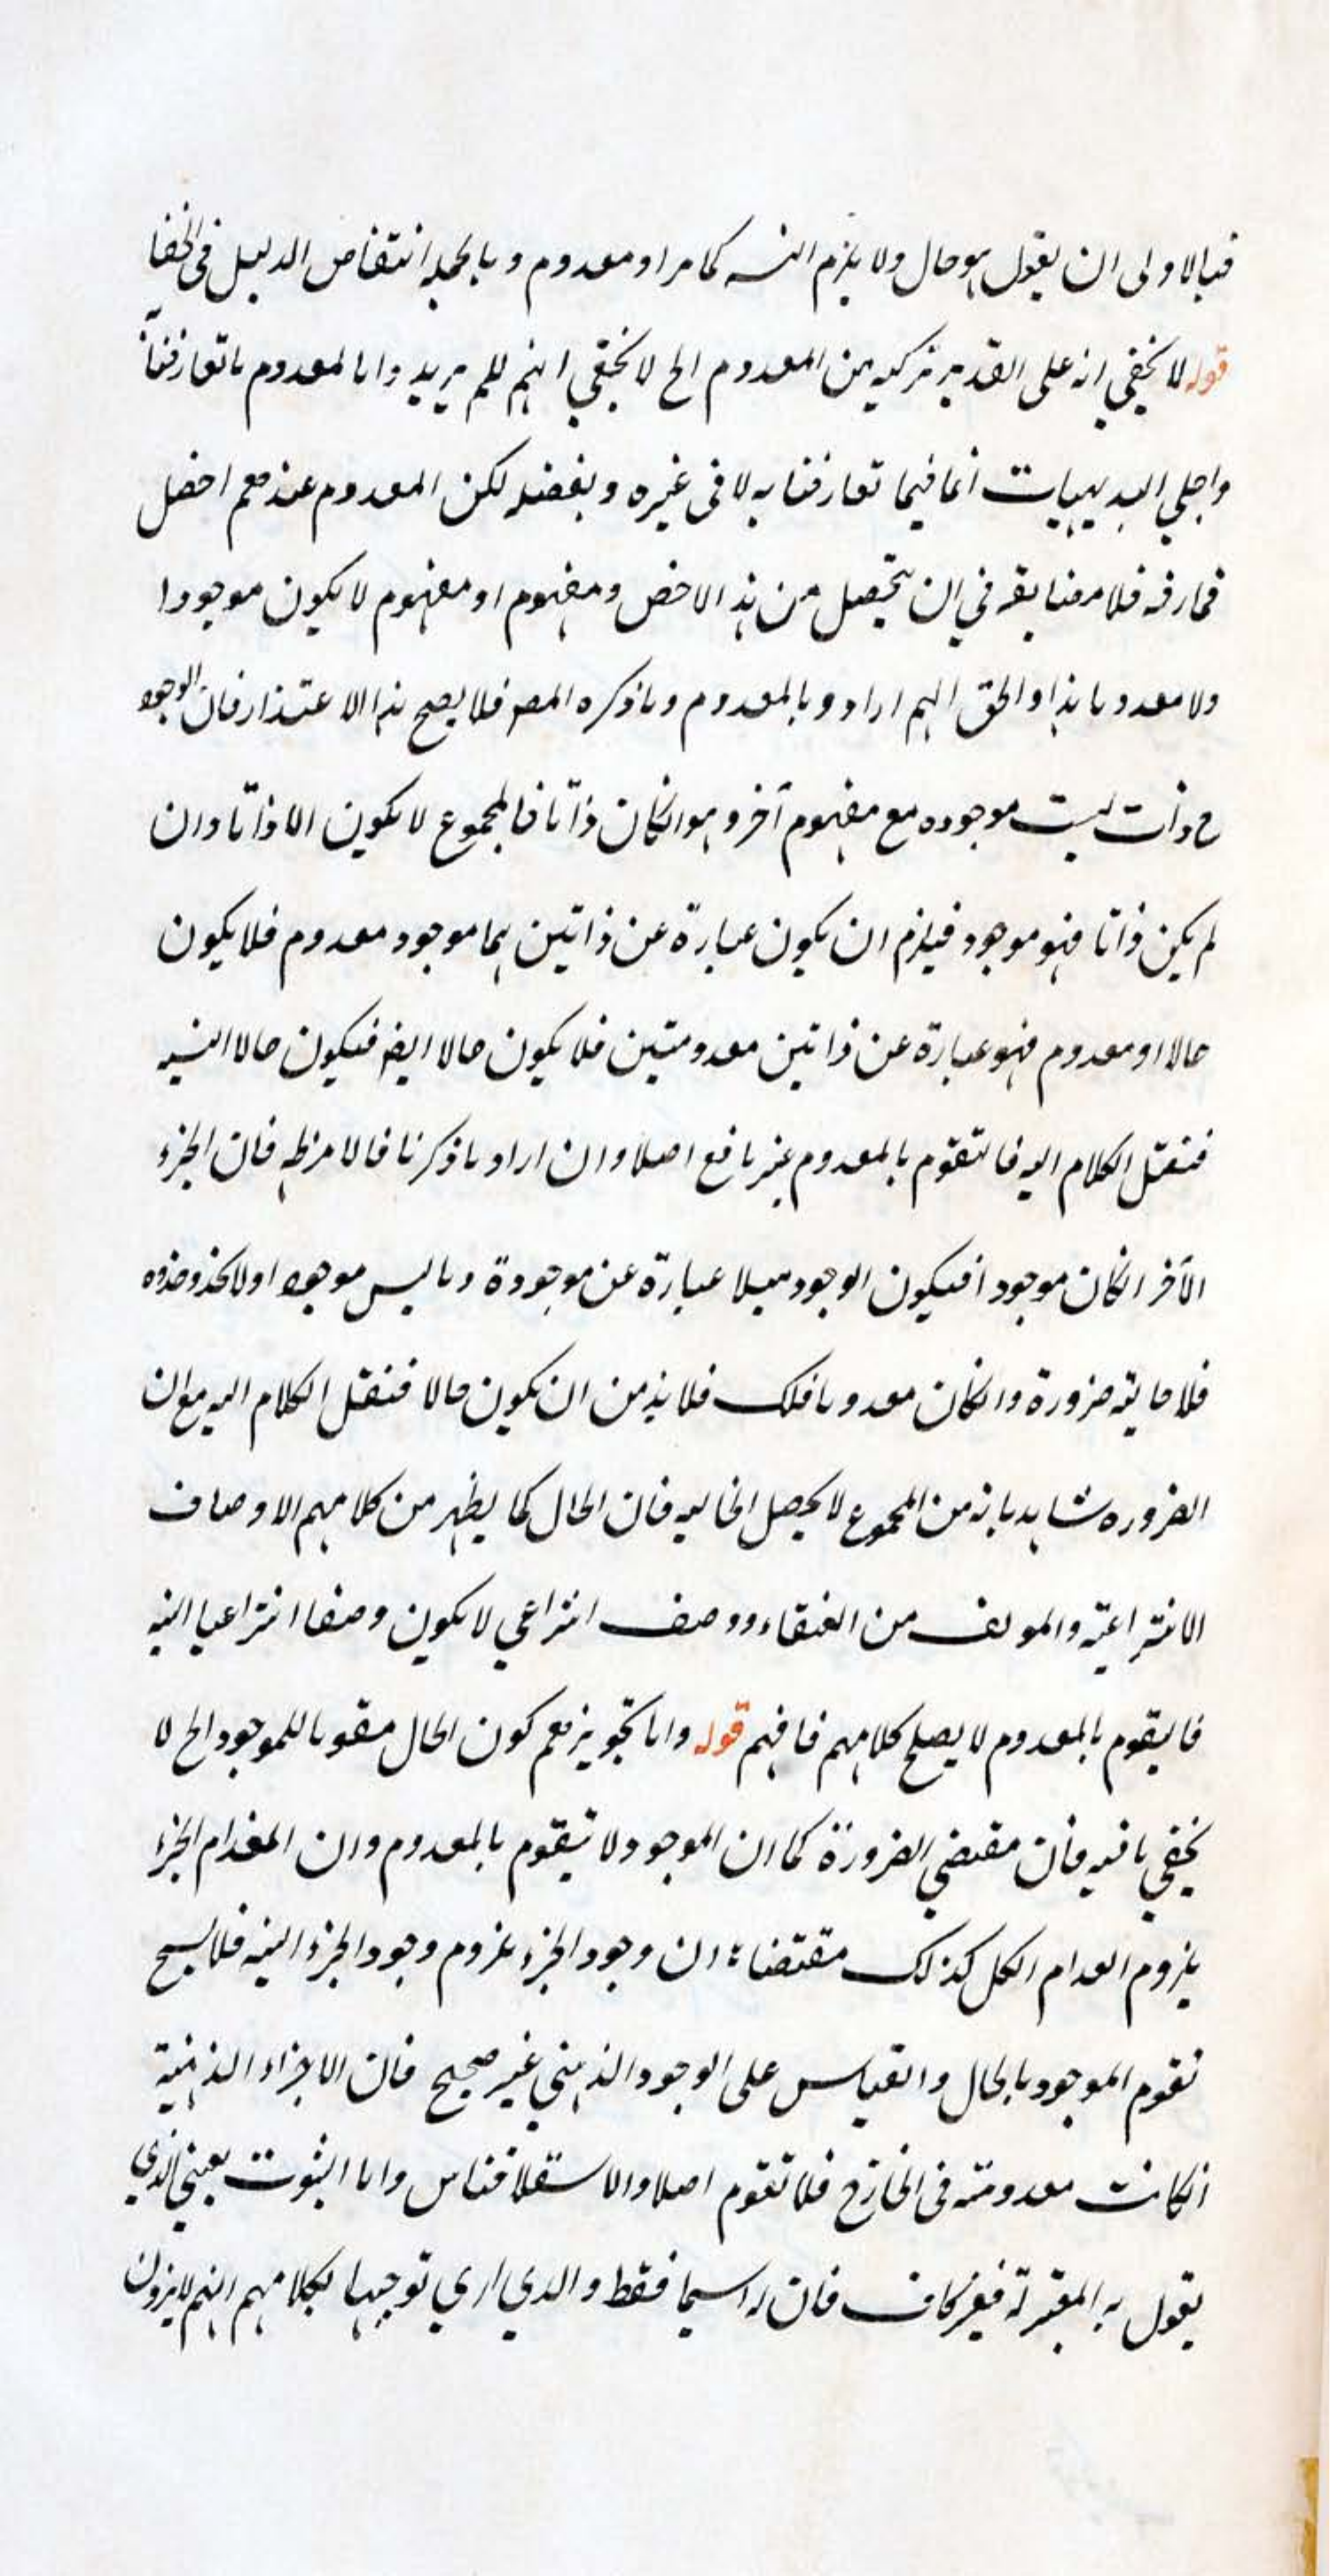 فبالاولى ان يقول هو حال ولا يلزم التسـ كما مر او معدوم وبالجملة انتقاض الدليل في الخفا
قوله لا يخفى انه على تقدير تركبه من المعدوم الخ لا يخفى انهم لم يريدوا بالمعدوم ما تعارفنا
واجلى البديهيات انما فيما تعارفنا به لا في غيره وبغضه لكن المعدوم عندهم اخص
فما رفه فلا مضايقة في ان يتحصل من هذا الاخص ومفهوم او مفهوم لا يكون موجودا
ولا معدوما هذا والحق انهم ارادوا بالمعدوم ما ذكره المصـ فلا يصح هذا الاعتذار فان الوجود
ح ذات ليست موجوده مع مفهوم آخر وهو انكان ذاتا فالمجموع لا يكون الا ذاتا وان
لم يكن ذاتا فهو موجود فيلزم ان يكون عبارة عن ذاتين هما موجود معدوم فلا يكون
حالا او معدوم فهو عبارة عن ذاتين معدومتين فلا يكون حالا ايضـ فيكون حالا البتة
فننقل الكلام اليه فالتقوم بالمعدوم غير نافع اصلا وان اراد ما ذكرنا فالامر ظـ فان الجزء
الآخر انكان موجودا فيكون الوجود مثلا عبارة عن موجودة وما ليس موجودا ولا يحذو حذوه
فلا حالية ضرورة وانكان معدوما فكك فلا بد من ان يكون حالا فننقل الكلام اليه مع ان
الضروره شاهد بانه من المجموع لا يحصل الحاليه فان الحال كما يظهر من كلامهم الاوصاف
الانتزاعية والمولف من العنقاء ووصف انتزاعي لا يكون وصفا انتزاعيا البتة
فاليقوم بالمعدوم لا يصلح كلامهم فافهم قوله واما تجويزهم كون الحال مقوما للموجود الخ لا
يخفى ما فيه فان مقتضى الضرورة كما ان الموجود لا يتقوم بالمعدوم وان انعدام الجزء
يلزوم انعدام الكل كذلك مقتضاة ان وجود الجزء ملزوم وجود الجزء البتة فلا يسح
تقوم الموجود بالحال والقياس على الوجود الذهني غير صحيح فان الاجزاء الذهنية
انكانت معدومة في الخارج فلا تقوم اصلا والا استقلا فتاس واما الثبوت بمعنى الذي
يقول به المعتزلة فغير كاف فان له اسما فقط والذي ارى توجيها لكلامهم انهم لا يرون